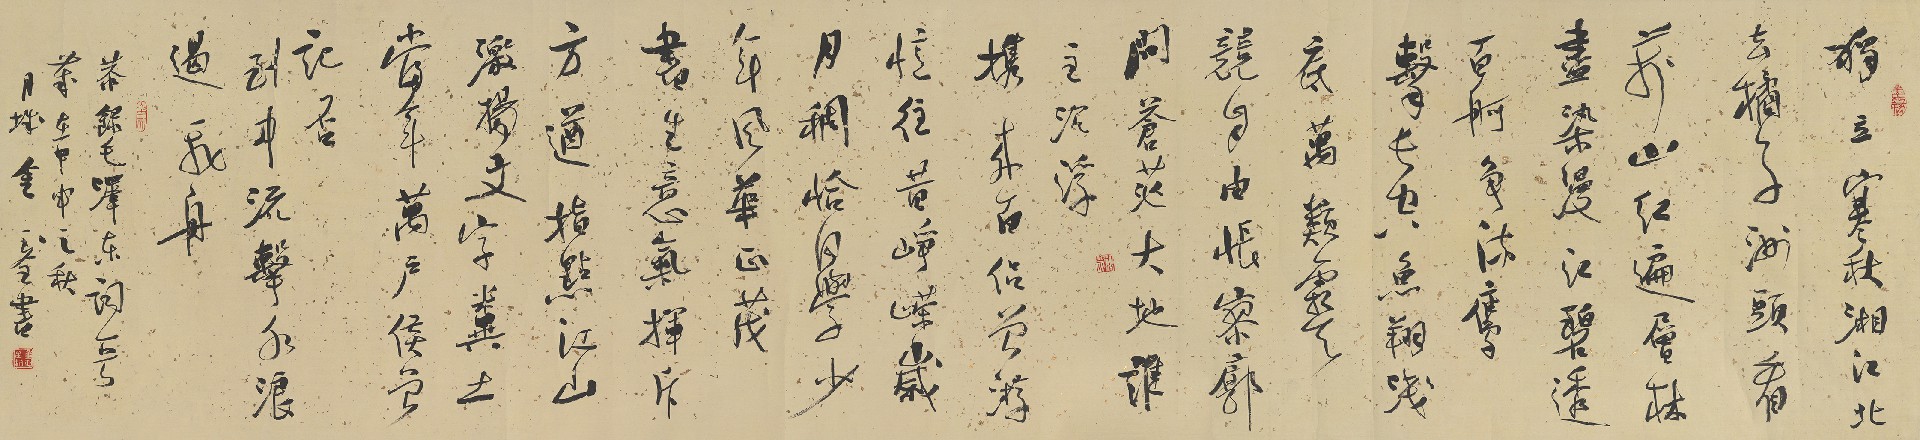 獨立寒秋湘江北
去橘子洲頭看
萬山红遍層林
盡染漫江碧透
百舸争流鷹
擊長空魚翔淺
底萬類霜天
競自由悵寥廓
問蒼茫大地誰
主沉浮
携來百侣曾游
憶往昔崢嶸歲
月稠恰同學少
年風華正茂
書生意氣揮斥
方遒指點江山
激揚文字糞土
當年萬户侯曾
記否
到中流擊水浪
遏飛舟
恭錄毛澤東詞
甲申之秋
月城金書